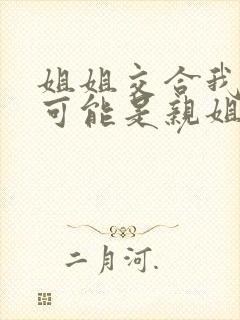 姐姐交合我
可能是親姐
二月河.